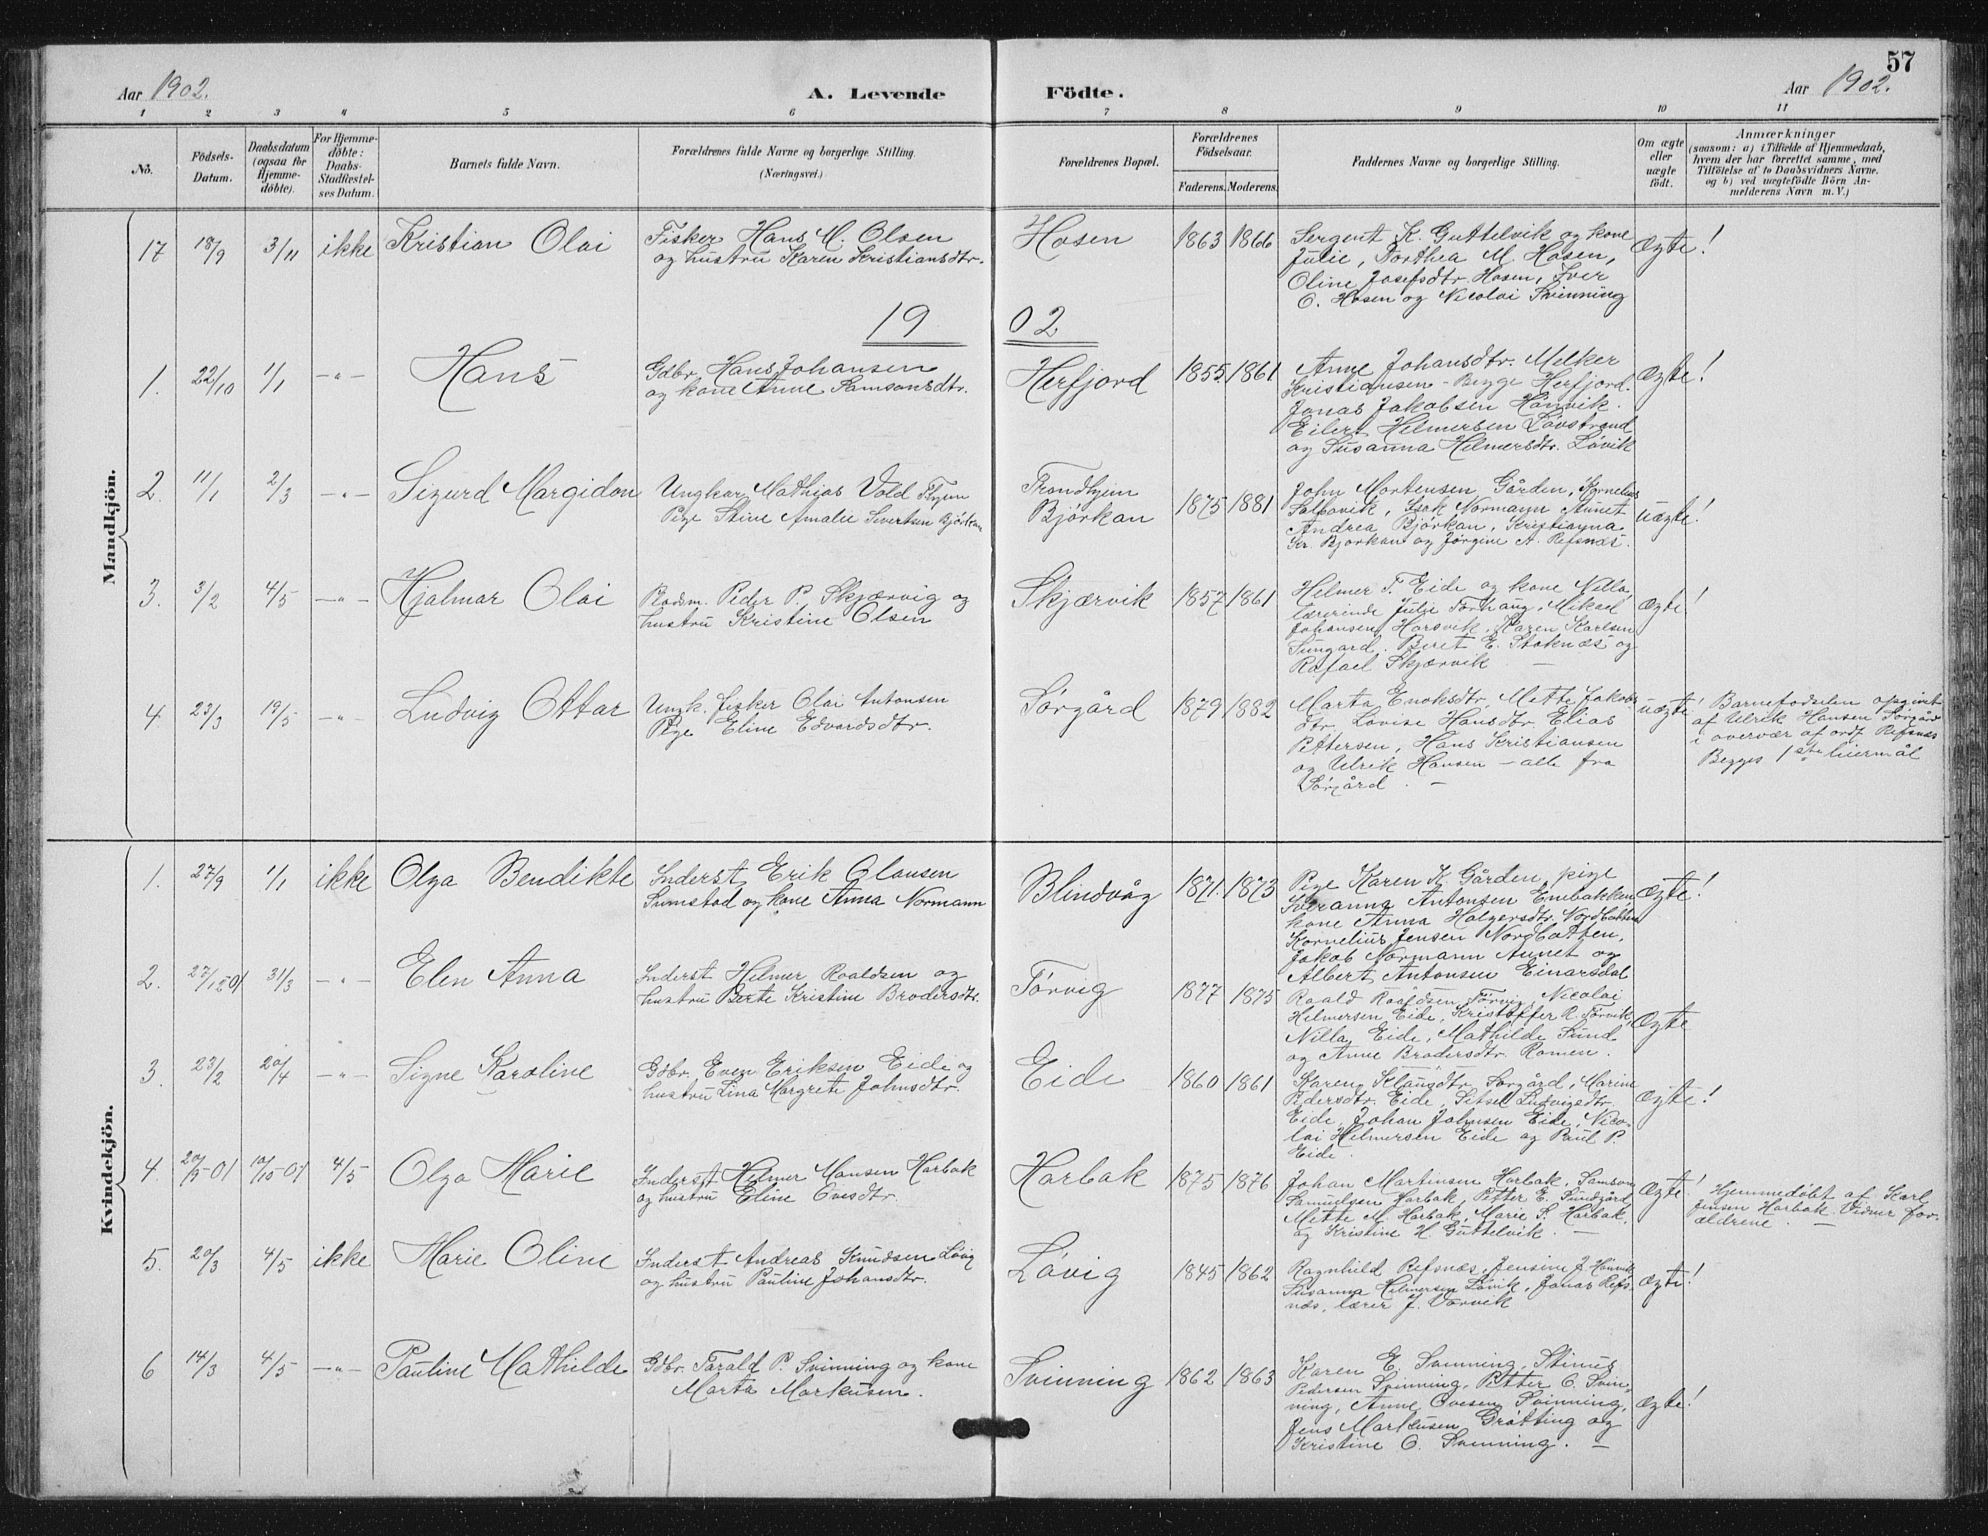 57
Aar 1902. A. Levende Födte. Aar 1902.
1 2 3 4 5 6 7 8 9 10 11
No.
Födsels-Datum.
Daabsdatum (ogsaa for Hjemme-döbte).
For Hjemme-döbte: Daabs-Stadfæstel-ses Datum.
Barnets fulde Navn.
Forældrenes fulde Navne og borgerlige Stilling.
(Næringsvei.)
Forældrenes Bopæl.
Forældrenes Födselsaar.
Faderens. Moderens.
Faddernes Navne og borgerlige Stilling.
Om ægte eller uægte födt.
Anmærkninger
(saasom: a) i Tilfælde af Hjemmedaab,
hvem der har forrettet samme, med
Tilföielse af to Daabsvidners Navne.
og b) ved uægtefödte Börn An-
melderens Navn m. V.)
Mandkjön.
17 18/9 3/11 ikke Kristian Olai
Fisker Hans M. Olsen
og hustru Karen Kristiansdtr.
Hosen 1863 1866
Sergent K. Guttelvik og kone
Julie, Dorthea M. Hosen,
Oline Josefsdtr. Hosen, Iver
O. Hosen og Nicolai Svinning
Ægte!
1902
1. 22/10 1/1 -"- Hans
Gdbr. Hans Johansen
og kone Anne Samsonsdtr.
Herfjord 1855 1861
Anne Johansdtr. Melker
Kristiansen - Begge Herfjord.
Jonas Jakobsen Hönvik.
Eilert Helmersen Lövstrand
og Susanna Helmersdtr. Lövik
Ægte!
2. 11/1 2/3 -"- Sigurd Margidon
Ungkar Mathias Vold Thjem
Pige Stine Amalie Sivertsen Björkan
Trondhjem
Björkan 1875 1881
John Mortensen Gården, Kornelius
Isak Normann Aunet
Andrea Björkan, Kristianna
Kr. Björkan og Jörgine A. Refsnæs.
uægte!
3. 3/2 4/5 -"- Hjalmar Olai
Peder P. Skjærvig og
hustru Kristine Olsen
Skjærvik 1857 1861
Helmer T. Eide og kone Nilla,
lærerinde Julie Torhaug, Mikael
Johansen Harsvik, Karen Karlsen
Sungard. Beret E. Stoknæs og
Rafael Skjærvik
Ægte!
4 23/3 19/5 -"- Ludvig Ottar
Ungk. fisker Olai Antonsen
Pige Eline Edvardsdtr.
Sörgård 1879 1882
Marta Enoksdtr, Mette Jakobs
dtr. Lovise Hansdtr. Elias
Pettersen, Hans Kristiansen
og Ulrik Hansen - alle fra
Sörgård.
uægte!
Barnefodslen opgivet
af Ulrik Hansen Sörgård
i overvær af ordf. Refsnæs
Begges 1ste leiermål
Kvindekjön.
1. 27/9 1/1 ikke Olga Bendikte
Inderst Erik Olausen
Sumstad og kone Anna Normann
Blindvåg 1871. 1873
Pige Karen K. Gården, pige
Iveranna Antonsen Einebakken,
kone Anna Holgersdtr. Nordbotten
Kornelius Jensen Nordbotten,
Jakob Normann Aunet og
Albert Antonsen Einarsdal
Ægte!
2. 27/12 01 31/3 -"- Elen Anna
Inderst Helmer Roaldsen og
hustru Berte Kristine Brodersdtr.
Törvig 1877 1875
Roald Roaldsen Törvig, Nicolai
Helmersen Eide, Kristoffer R. Törvik,
Nilla Eide, Mathilde Sund
og Anne Brodersdtr. Romen.
Ægte
3. 23/2 20/4 -"- Signe Karoline
Gdbr. Even Eriksen Eide og
hustru Lina Margrete Johnsdtr.
Eide 1860 1861
Karen Klausdtr Sorgård, Marine
Pedersdtr. Eide, Sitsel Ludvigsdtr.
Eide, Johan Johnsen Eide, Nico-
lai Helmersen Eide og Paul P.
Eide.
Ægte!
4. 20/9-01 10/10-01 4/5 Olga Marie
Inderst Helmer Hansen Harbak
og hustru Eline Ovesdtr.
Harbak 1875 1876
Johan Martinsen Harbak, Samson
Samuelsen Harbak, Petter E. Sundgård,
Mette M. Harbak, Marie S. Harbak,
og Kristine H. Guttelvik.
Ægte!
Hjemmedöbt af Karl
Jensen Harbak. Vidner for-
ældrene.
5. 20/3 4/5 ikke Marie Oline
Inderst Andreas Knudsen Lövig
og hustru Pauline Johansdtr.
Lövig 1845 1862
Ragnhild Refsnæs, Jensine J. Hönvik
Susanna Helmersen Lövik, Jonas Refs-
næs, lærer J. Vorvik
Ægte!
6 14/3 4/5 -"- Pauline Mathilde
Gdbr. Tarald P. Svinning og kone
Marta Markusen.
Svinning 1862 1863
Karen E. Svinning, Stinus
Pedersen Svinning, Petter O. Svin-
ning, Anne Ovesen Svinning,
Jens Markusen Gråtting og
Kristine O. Svinning.
Ægte!